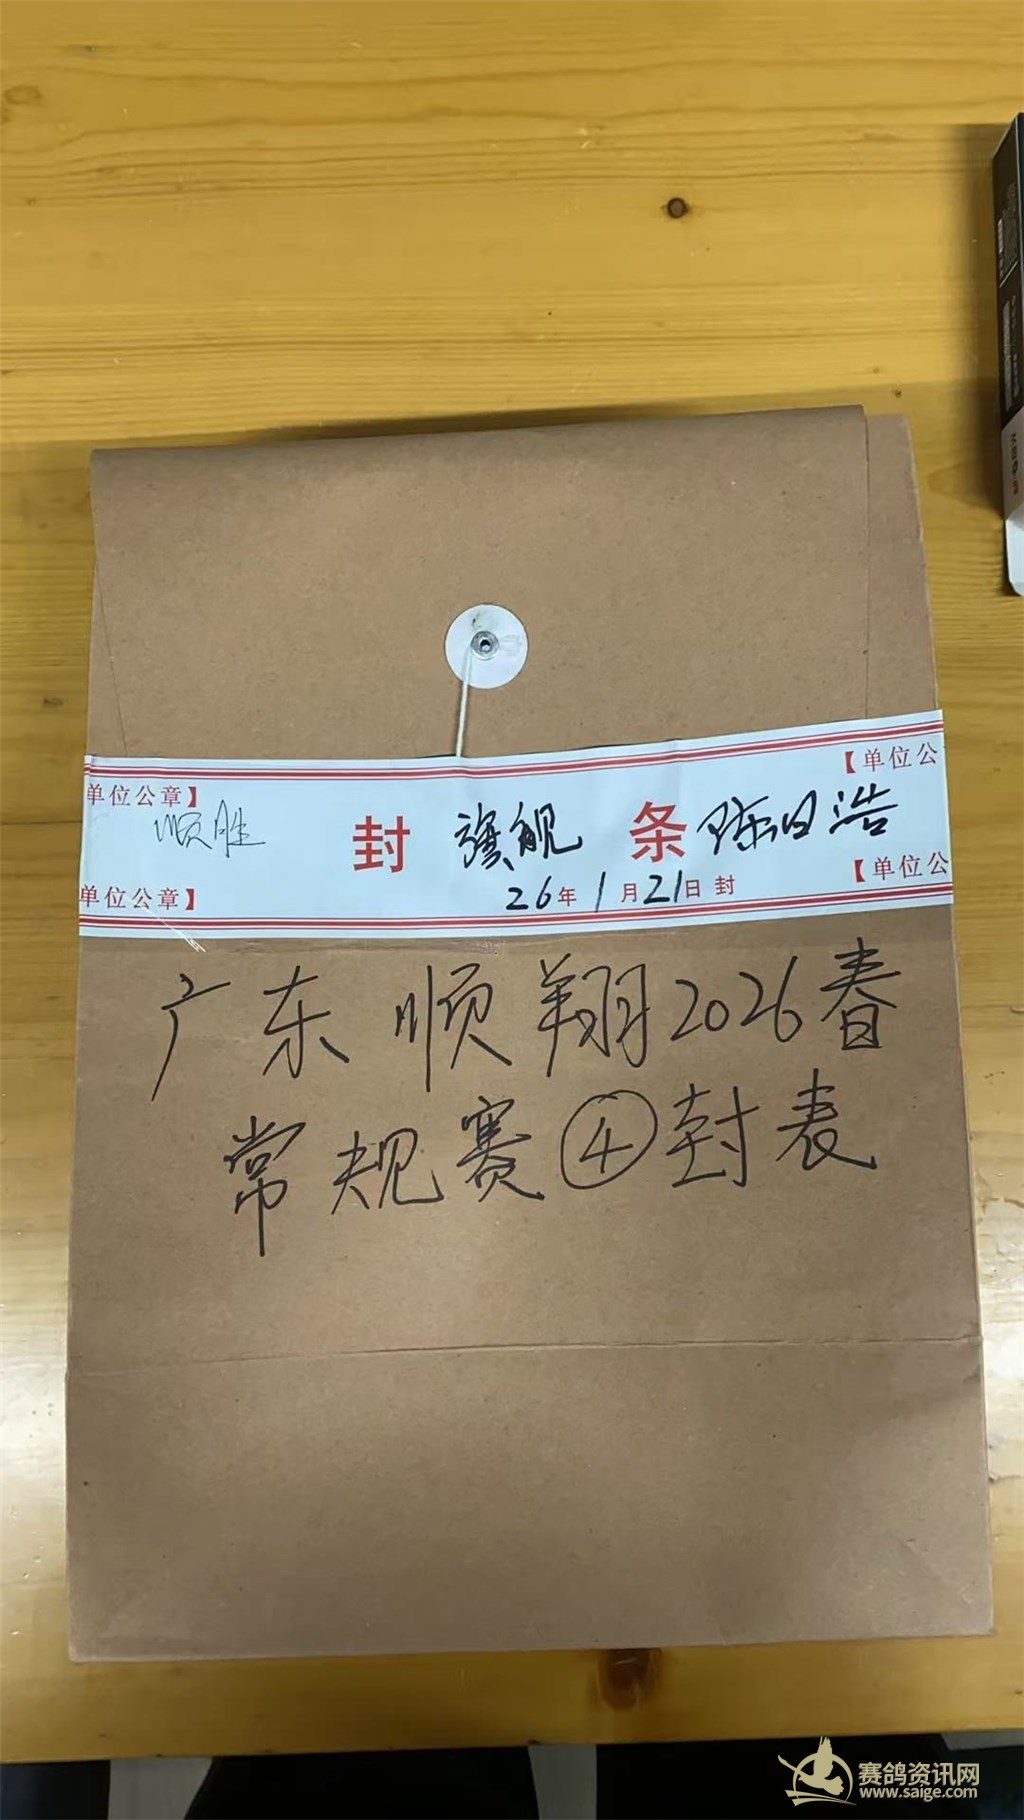 【单位公
单位公章】
顺胜 封 旗舰 条 陈日浩
【单位公
单位公章】
26年1月21日 封
广东顺翔2026春
常规赛④封表
赛鸽资讯网
www.saige.com